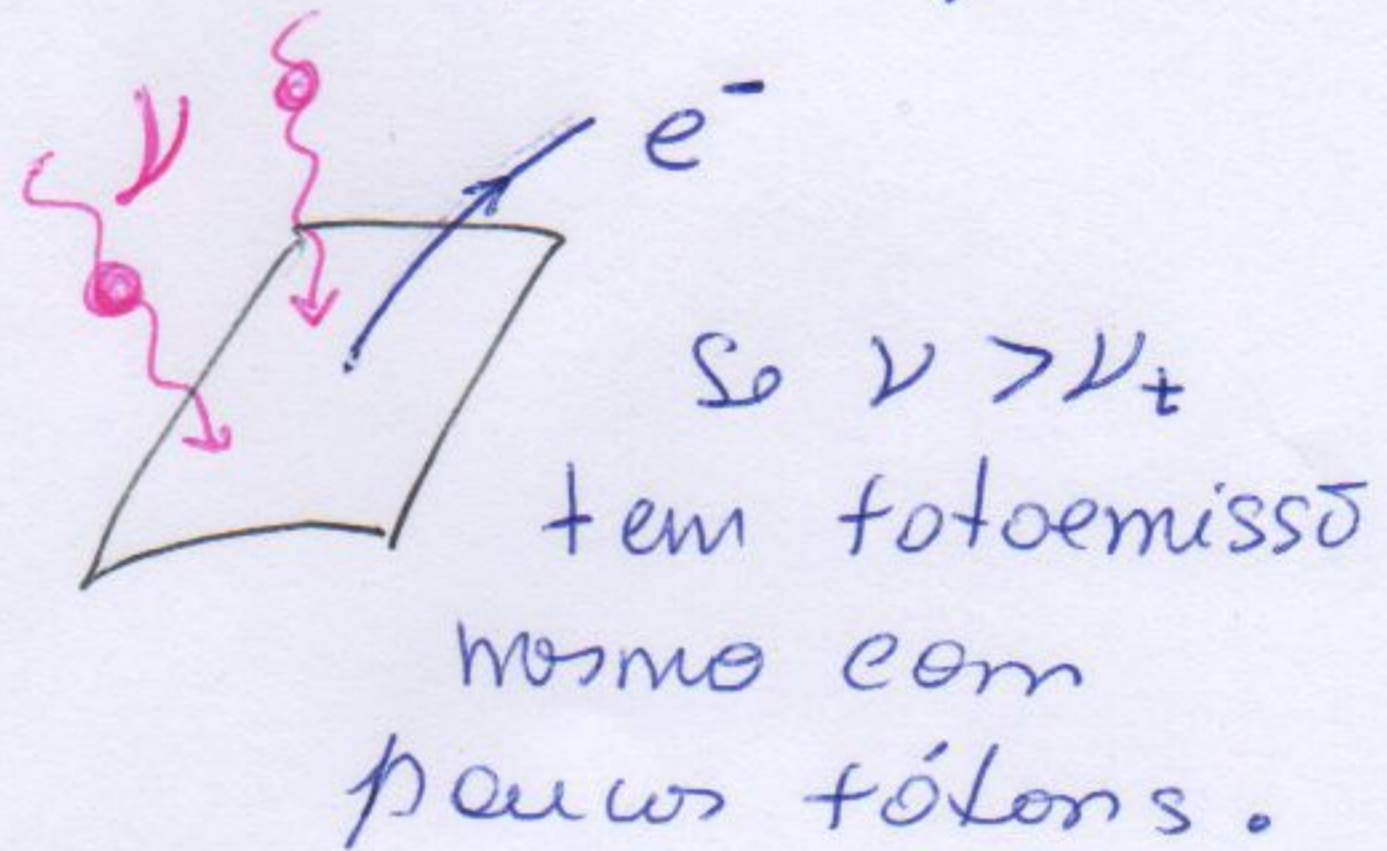 ν
e⁻
Se ν > νₜ
tem fotoemissõ
mesmo com
poucos fótons.